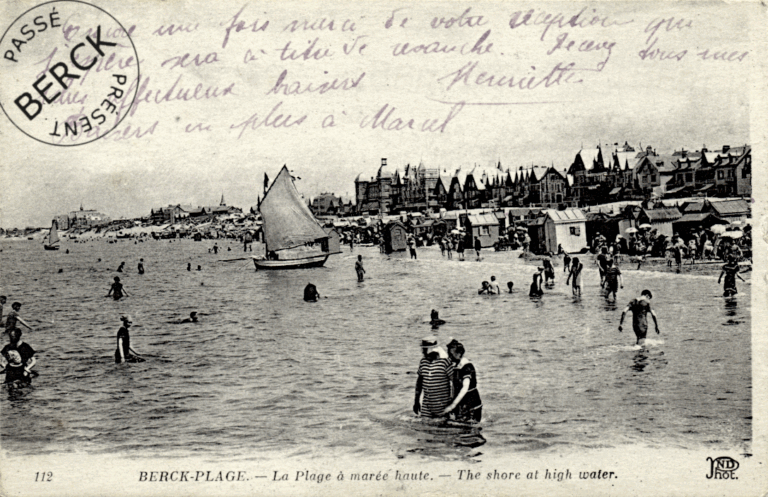 PASSÉ
BERCK
PRÉSENT
une fois merci de votre réception que
j'espère sera à titre de revanche. Recevez tous mes
plus affectueux baisers Henriette
Baisers en plus à Marcel
112 BERCK-PLAGE. — La Plage à marée haute. — The shore at high water.
ND Phot.